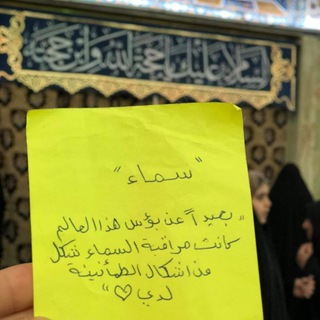 السلام عليك يا حجة الله وابن حجته
"سماء"
"بعيداً عن بؤس هذا العالم
كانت مراقبة السماء شكل
من اشكال الطمأنينة
لدي ♡"